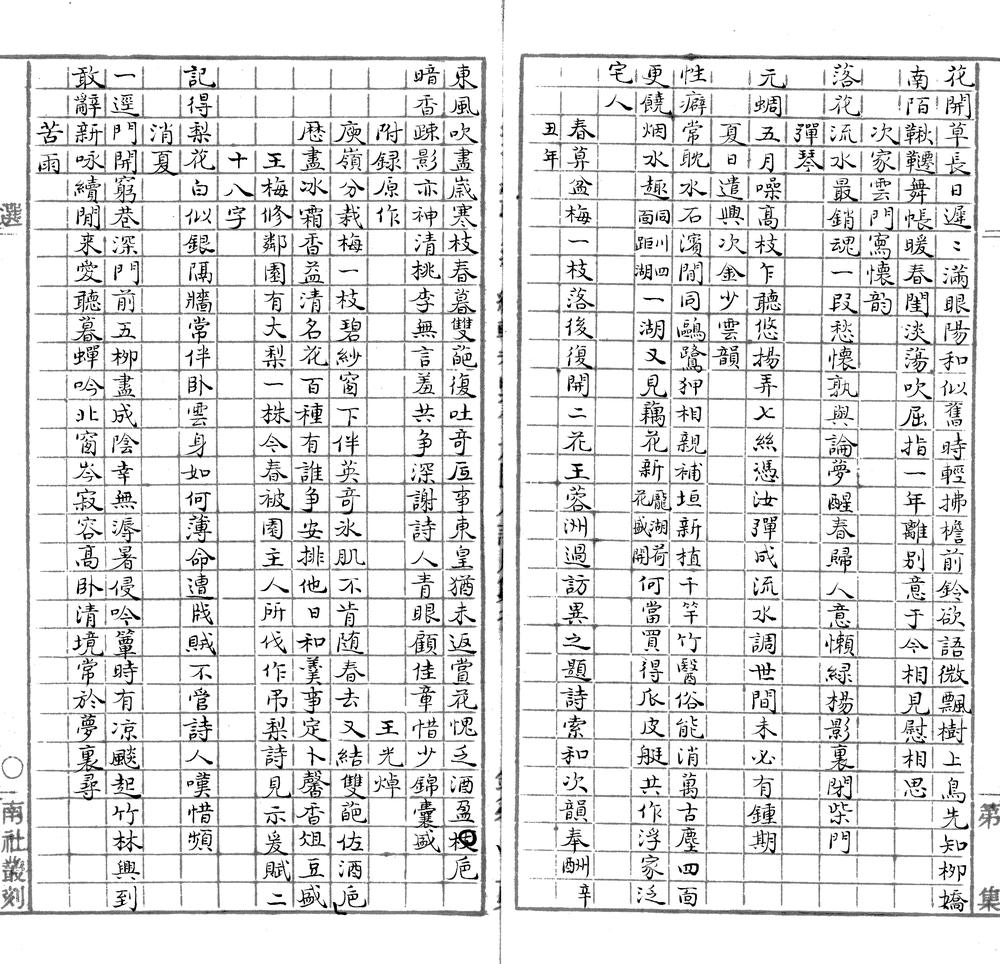 花開草長日遲〻滿眼陽和似舊時輕拂檐前鈴欲語微飄樹上鳥先知柳嬌
南陌鞦韆舞帳暖春閨淡蕩吹屈指一年離別意于今相見慰相思
次家雲門寫懷韵
落花流水最銷魂一段愁懷孰與論夢醒春歸人意懶綠楊影裏閉柴門
彈琴
元蜩五月噪高枝乍聽悠揚弄七絲憑汝彈成流水調世間未必有鍾期
夏日遣興次金少雲韻
性癖常耽水石濱閒同鷗鷺狎相親補垣新植千竿竹醫俗能消萬古塵四面
更饒烟水趣同川四面距湖一湖又見藕花新龐湖荷花盛開何當買得瓜皮艇共作浮家泛
宅人
春草盆梅一枝落後復開二花王蓉洲過訪異之題詩索和次韻奉酬辛
丑年
東風吹盡歲寒枝春暮雙葩復吐奇底事東皇猶未返賞花愧乏酒盈卮
暗香疎影亦神清挑李無言羞共争深謝詩人青眼顧佳章惜少錦囊盛
附録原作 王光焯
庾嶺分栽梅一枝碧紗窗下伴英奇氷肌不肯随春去又結雙葩佐酒卮
歷盡冰霜香益清名花百種有誰争安排他日和羹事定卜馨香俎豆盛
王梅修鄰園有大梨一株今春被園主人所伐作吊梨詩見示爰賦二
十八字
記得梨花白似銀隔牆常伴卧雲身如何薄命遭戕賊不管詩人嘆惜頻
消夏
一逕門開窮巷深門前五柳盡成陰幸無溽暑侵吟簟時有凉颸起竹林興到
敢辭新咏續閒来愛聽暮蟬吟北窗岑寂容高卧清境常於夢裏尋
苦雨
第 集
選
南社叢刻